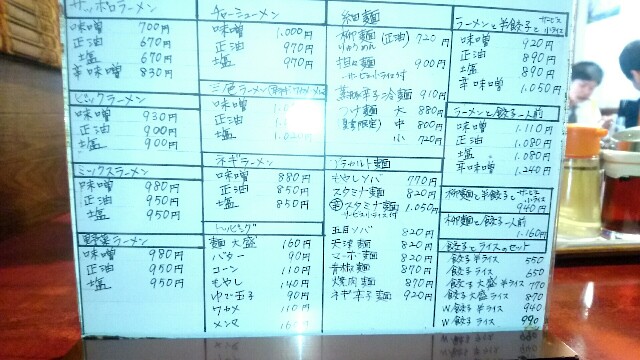 サッポロラーメン
味噌 700円
正油 670円
塩 670円
辛味噌 830円
ビックラーメン
味噌 930円
正油 900円
塩 900円
ミックスラーメン
味噌 980円
正油 950円
塩 950円
野菜ラーメン
味噌 980円
正油 950円
塩 950円
チャーシューメン
味噌 1,000円
正油 970円
塩 970円
三色ラーメン
味噌
正油
塩
ネギラーメン
味噌 880円
正油 850円
塩 850円
トッピング
麺大盛 160円
バター 90円
コーン 110円
もやし 140円
ゆで玉子 90円
ワカメ 110円
メンマ
細麺
柳麺(正油) 720円
りゅうめん
担々麺 900円
小ライス付
辛子冷麺 910円
つけ麺 大 880円
(夏季限定) 中 800円
小 720円
もやしソバ 770円
スタミナ麺 820円
スタミナ麺 1,050円
五目ソバ 820円
天津麺 820円
マーボー麺 820円
青椒麺 870円
焼肉麺 870円
ネギ辛子麺 920円
ラーメンと半餃子とサービス小ライス
味噌 920円
正油 890円
塩 890円
辛味噌 1,050円
ラーメンと餃子一人前
味噌 1,110円
正油 1,080円
塩 1,080円
辛味噌 1,240円
柳麺と半餃子とサービス小ライス
940円
柳麺と餃子一人前
1,160円
餃子とライスのセット
餃子半ライス 550
餃子ライス 650
餃子大盛半ライス 770
餃子大盛ライス 870
W餃子半ライス 940
W餃子ライス 990